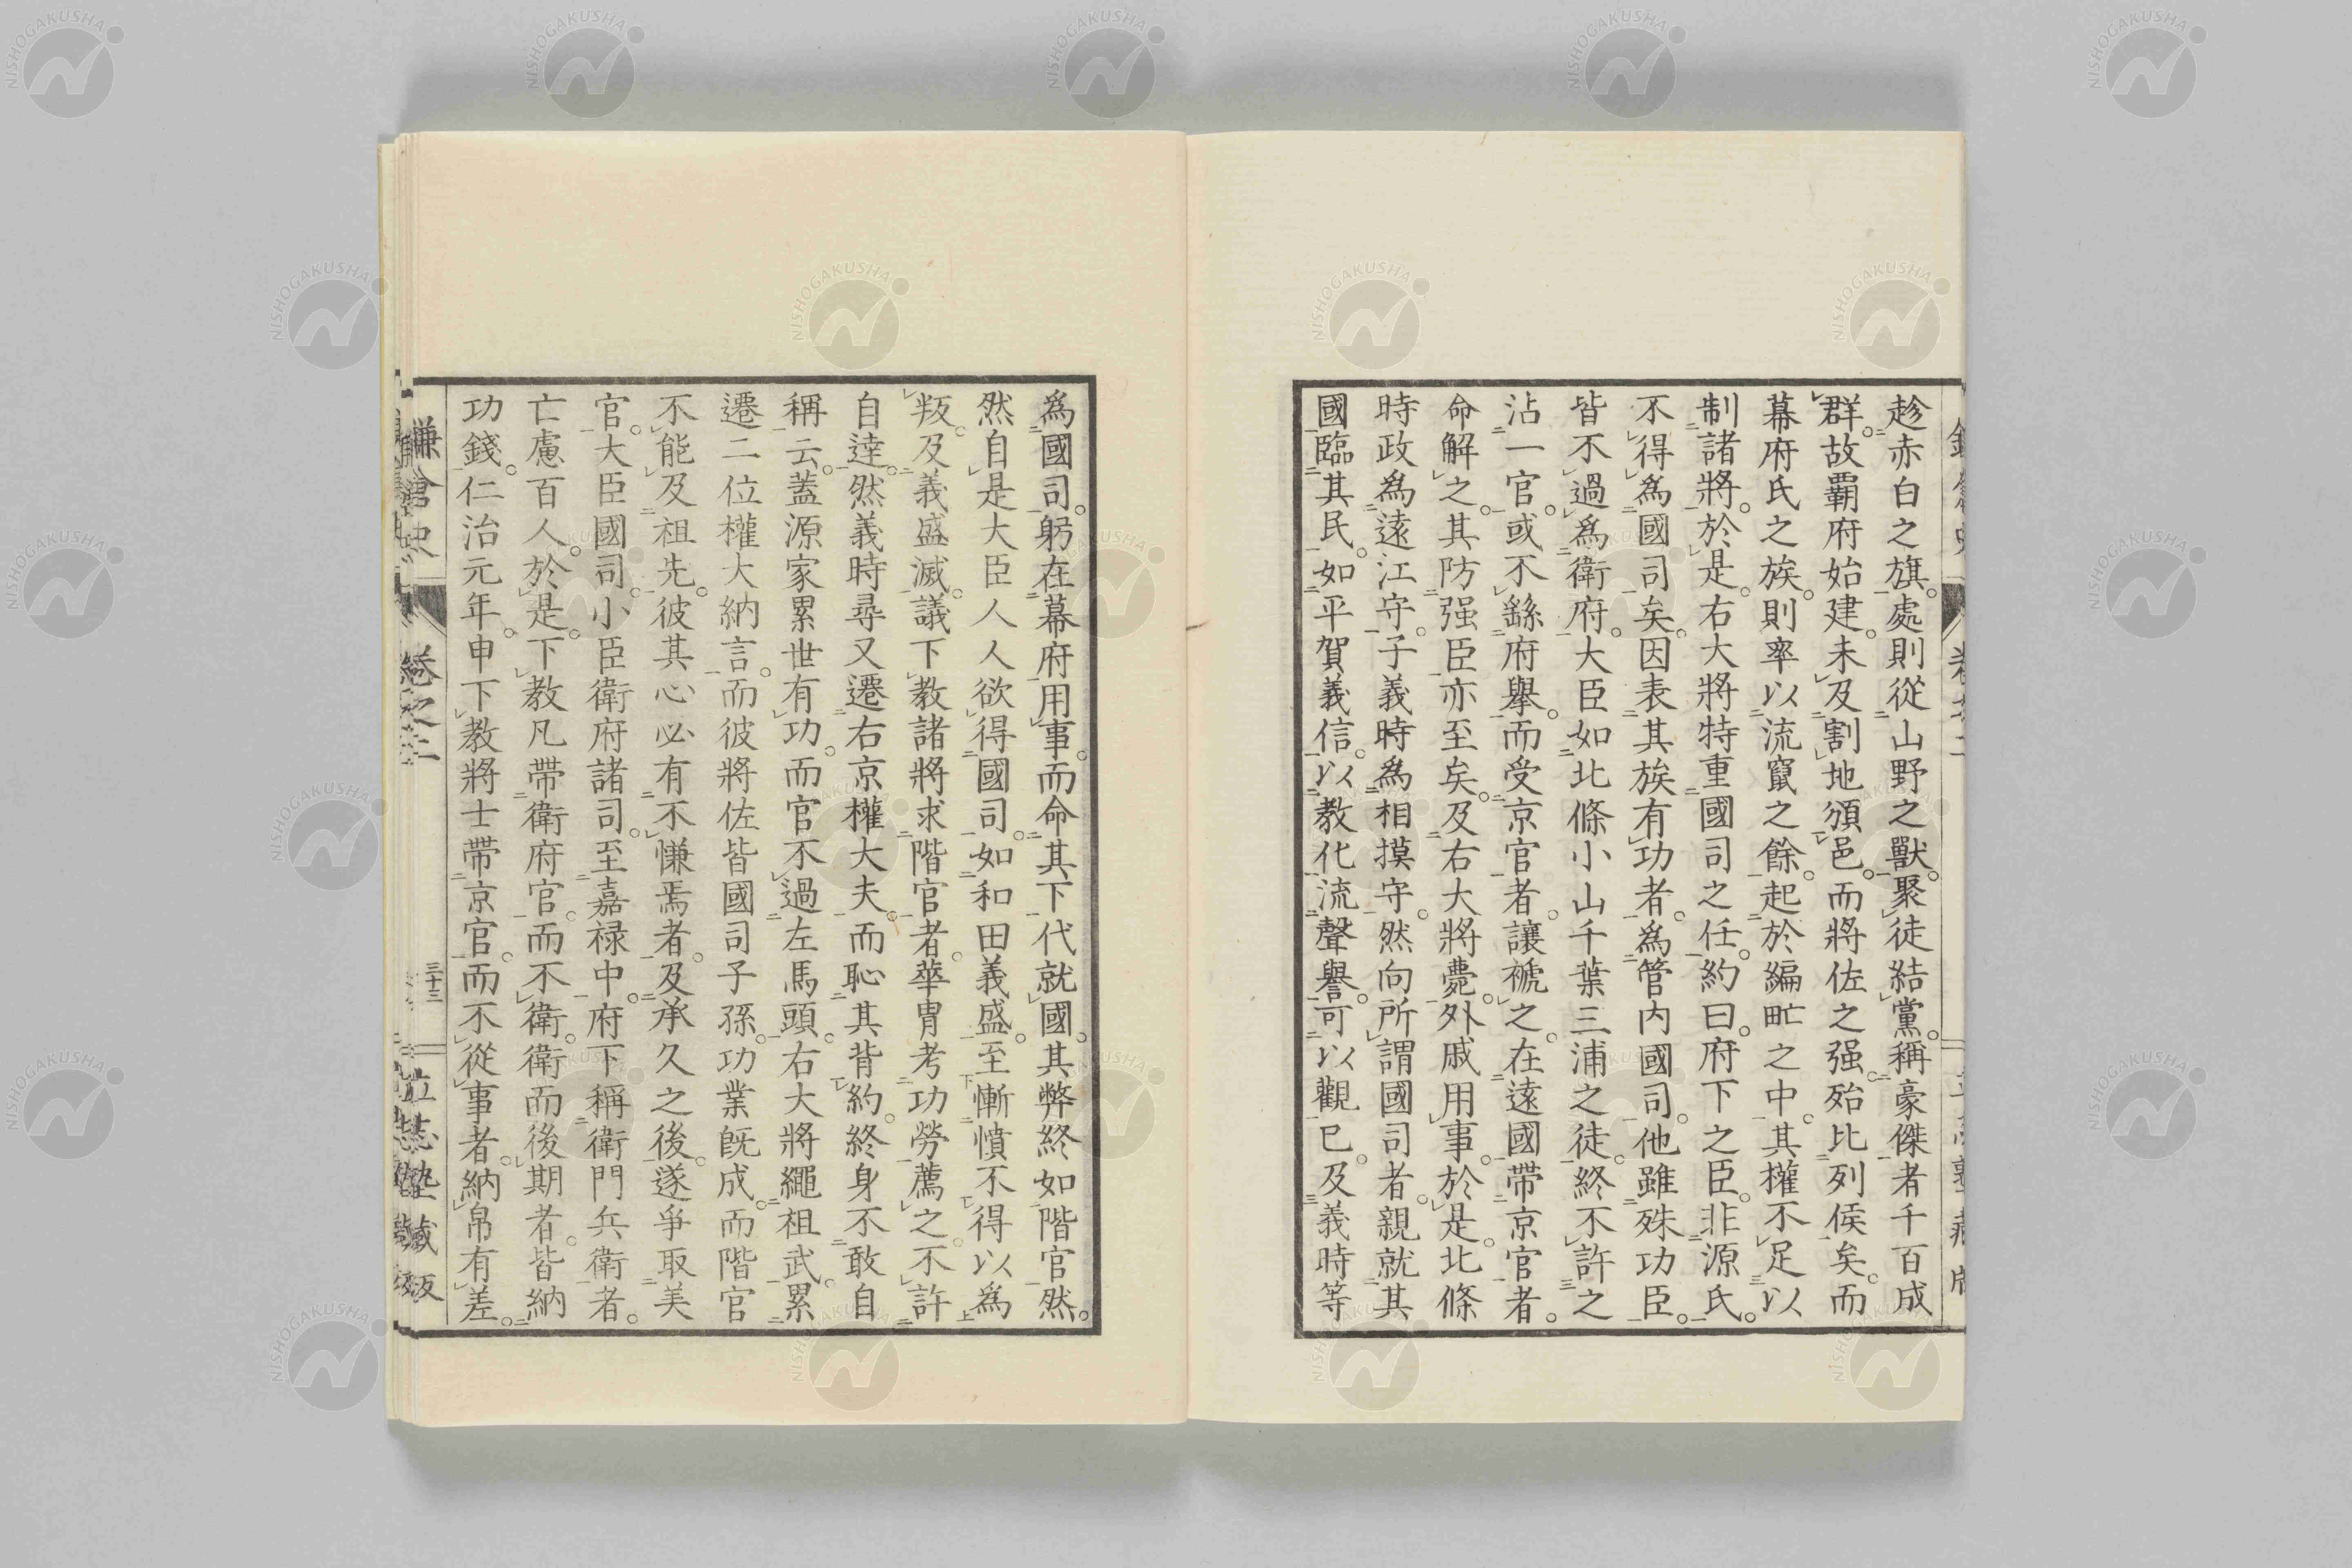 趁赤白之旗。處則從山野之獸。聚徒結黨。稱豪傑者千百成
群。故覇府始建。未及割地頒邑。而將佐之强。殆比列侯矣。而
幕府氏之族。則率以流竄之餘。起於編甿之中。其權不足以
制諸將。於是。右大將特重國司之任。約曰。府下之臣。非源氏。
不得爲國司矣。因表其族有功者。爲管内國司。他雖殊功臣。
皆不過爲衛府。大臣如北條小山千葉三浦之徒。終不許之
沾一官。或不繇府擧。而受京官者。讓褫之。在遠國帶京官者。
命解之。其防强臣亦至矣。及右大將薨。外戚用事。於是。北條
時政爲遠江守。子義時爲相摸守。然向所謂國司者。親就其
國臨其民。如平賀義信。以教化流聲譽。可以觀已。及義時等
爲國司。躬在幕府用事。而命其下代就國。其弊終如階官然。
然自是大臣人人欲得國司。如和田義盛。至慚憤不得以爲
叛。及義盛滅。議下教諸將求階官者。華胄考功勞薦之。不許
自達。然義時尋又遷右京權大夫。而恥其背約。終身不敢自
稱云。蓋源家累世有功。而官不過左馬頭。右大將繩祖武。累
遷二位權大納言。而彼將佐皆國司子孫。功業旣成。而階官
不能及祖先。彼其心必有不慊焉者。及承久之後。遂爭取美
官。大臣國司。小臣衛府諸司。至嘉禄中。府下稱衛門兵衛者。
亡慮百人。於是。下教凡帶衛府官。而不衛。衛而後期者。皆納
功錢。仁治元年。申下教將士帶京官。而不從事者。納帛有差。
鎌倉史
卷之二
三十三
藏版